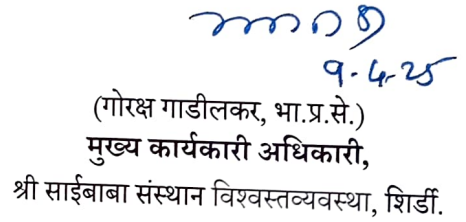 9-4-25
(गोरक्ष गाडीलकर, भा.प्र.से.)
मुख्य कार्यकारी अधिकारी,
श्री साईबाबा संस्थान विश्वस्तव्यवस्था, शिर्डी.